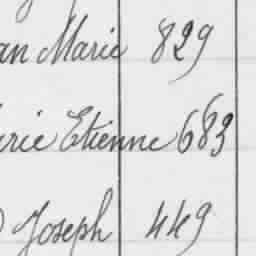 an Marie 829
rie Etienne 683
Joseph 449